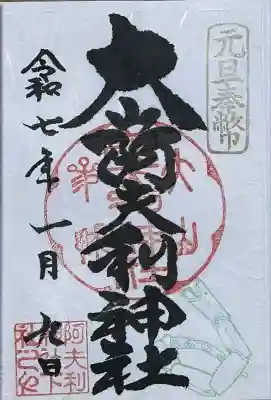 元旦奉幣
大山阿夫利神社
令和七年一月九日
阿夫利